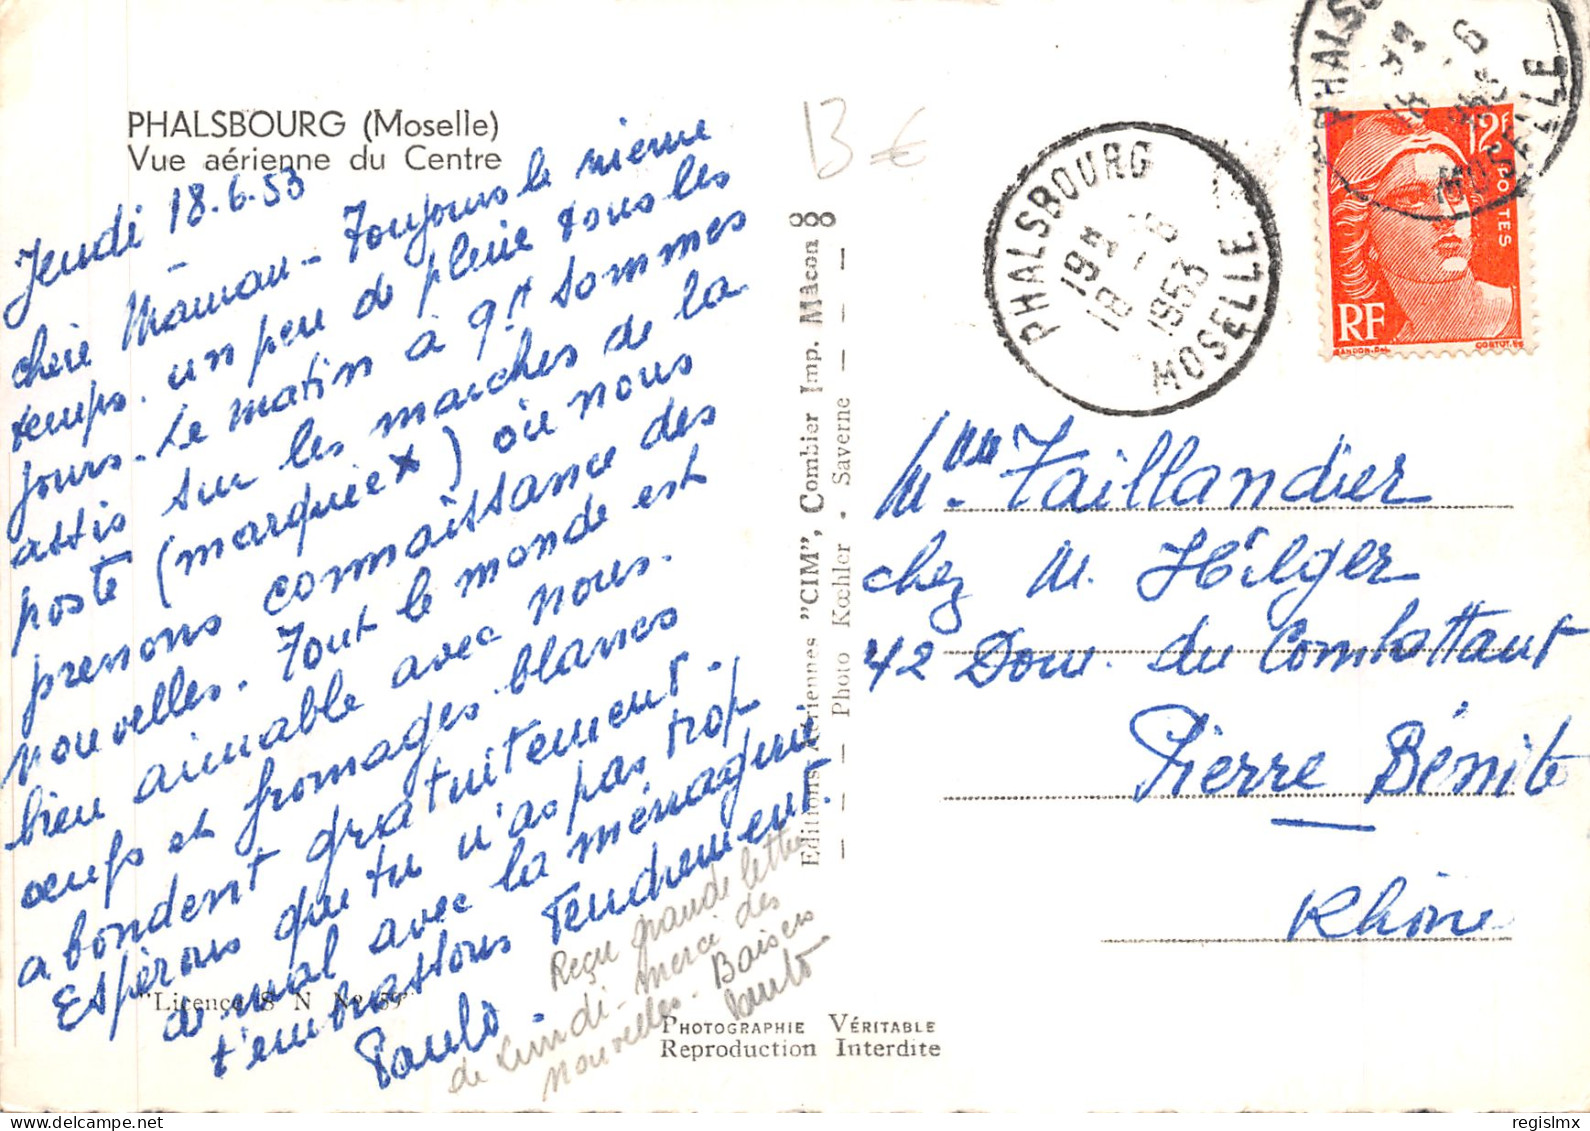 PHALSBOURG (Moselle)
Vue aérienne du Centre
Jeudi 18.6.53
chère Maman - Toujours le même
temps. un peu de pluie tous les
jours. Le matin à 9h sommes
assis sur les marches de la
poste (marquée x) où nous
prenons connaissance des
nouvelles. Tout le monde est
bien aimable avec nous.
œufs et fromages blancs
abondent gratuitement.
Espérons que tu n'as pas trop
de mal avec la ménagerie
t'embrassons Tendrement.
Paulo.
Reçu grande lettre
de Lundi - merci des
nouvelles. Baisers
Paulo
"Licence S N No 39"
PHOTOGRAPHIE VÉRITABLE
Reproduction Interdite
Editions Aériennes "CIM", Combier Imp. Mâcon
— Photo Kœhler . Saverne —
B €
PHALSBOURG
19H
18 - 6
1953
MOSELLE
PHALSBOURG
MOSELLE
12F
POSTES
RF
GANDON.DEL
CORTOT.SC
Mme Taillandier
chez M. Hilger
42 Dom. du Combattant
Pierre Bénite
Rhône
regislmx